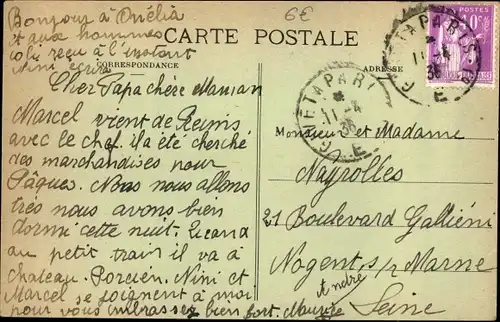 Bonjour à Onélia
et aux hommes
coli reçu à l'instant
Nini écrira
6€
CARTE POSTALE
CORRESPONDANCE
ADRESSE
POSTES
10c
11-4
36
ETAPARI
11-4
36
E
Cher Papa chère Maman
Marcel vient de Reims
avec le chef. il a été cherché
des marchandises pour
Pâques. Nous nous allons
très nous avons bien
dormi cette nuit.
au petit train il va à
Chateau. Porcien. Nini et
Marcel se joignent à moi
pour vous embrasser bien fort. Maurice
André
Monsieur et Madame
Nayrolles
21 Boulevard Galliéni
Nogent s/r Marne
Seine